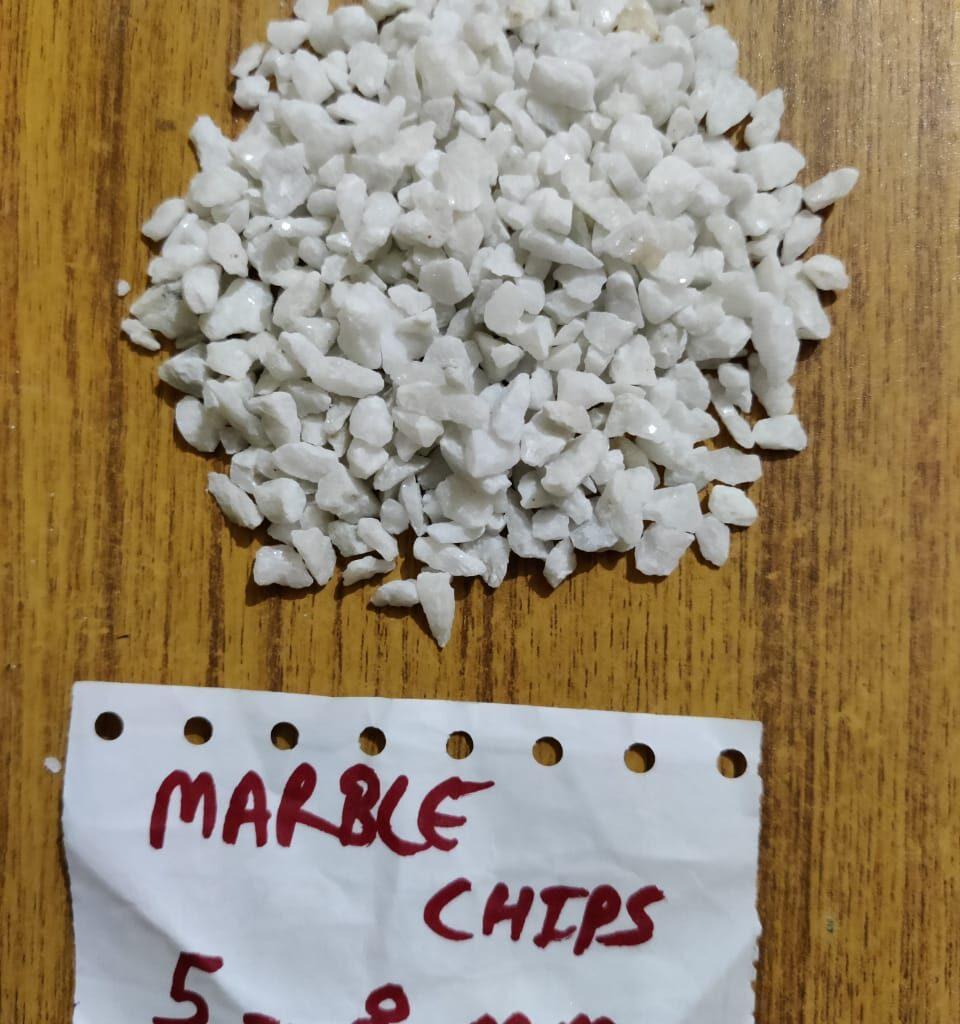 MARBLE
CHIPS
5 - 8 mm